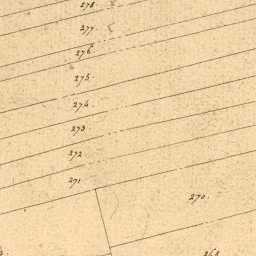 278
277
276
275.
274
273
272
271
270.
268